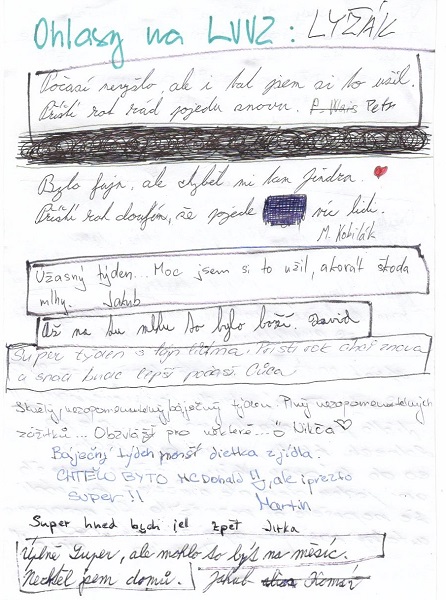 Ohlasy na LVVZ: LYŽÁK
Počasí nevyšlo, ale i tak jsem si to užil.
Příští rok rád pojedu znovu. Petr
Bylo fajn, ale chyběl mi tam Jindra.
Příští rok doufám, že pojede víc lidí.
M. Kobilák
Úžasný týden... Moc jsem si to užil, akorát škoda
mlhy. Jakub
Až na tu mlhu to bylo boží. David
Super týden s fajn lidma. Příští rok chci znova
a snad bude lepší počasí Cica
Skvělý, nezapomenutelný, báječný týden Plný nezapomenutelných
zážitků... Obzvlášť pro některé... Nikča
Báječný týden dietka z jídla.
CHTĚLO BY TO MCDonald!!, ale i přesto
super!!
Martin
Super hned bych jel zpět Jirka
Úplně super, ale mohlo to být na měsíc.
Nechtěl jsem domů. Jakub